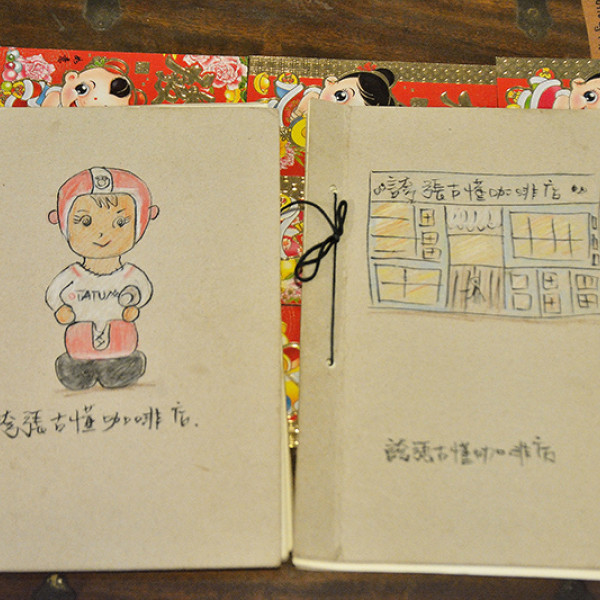 TATUN
誇張古懂咖啡店.
誇張古懂咖啡店
誇張古懂咖啡店